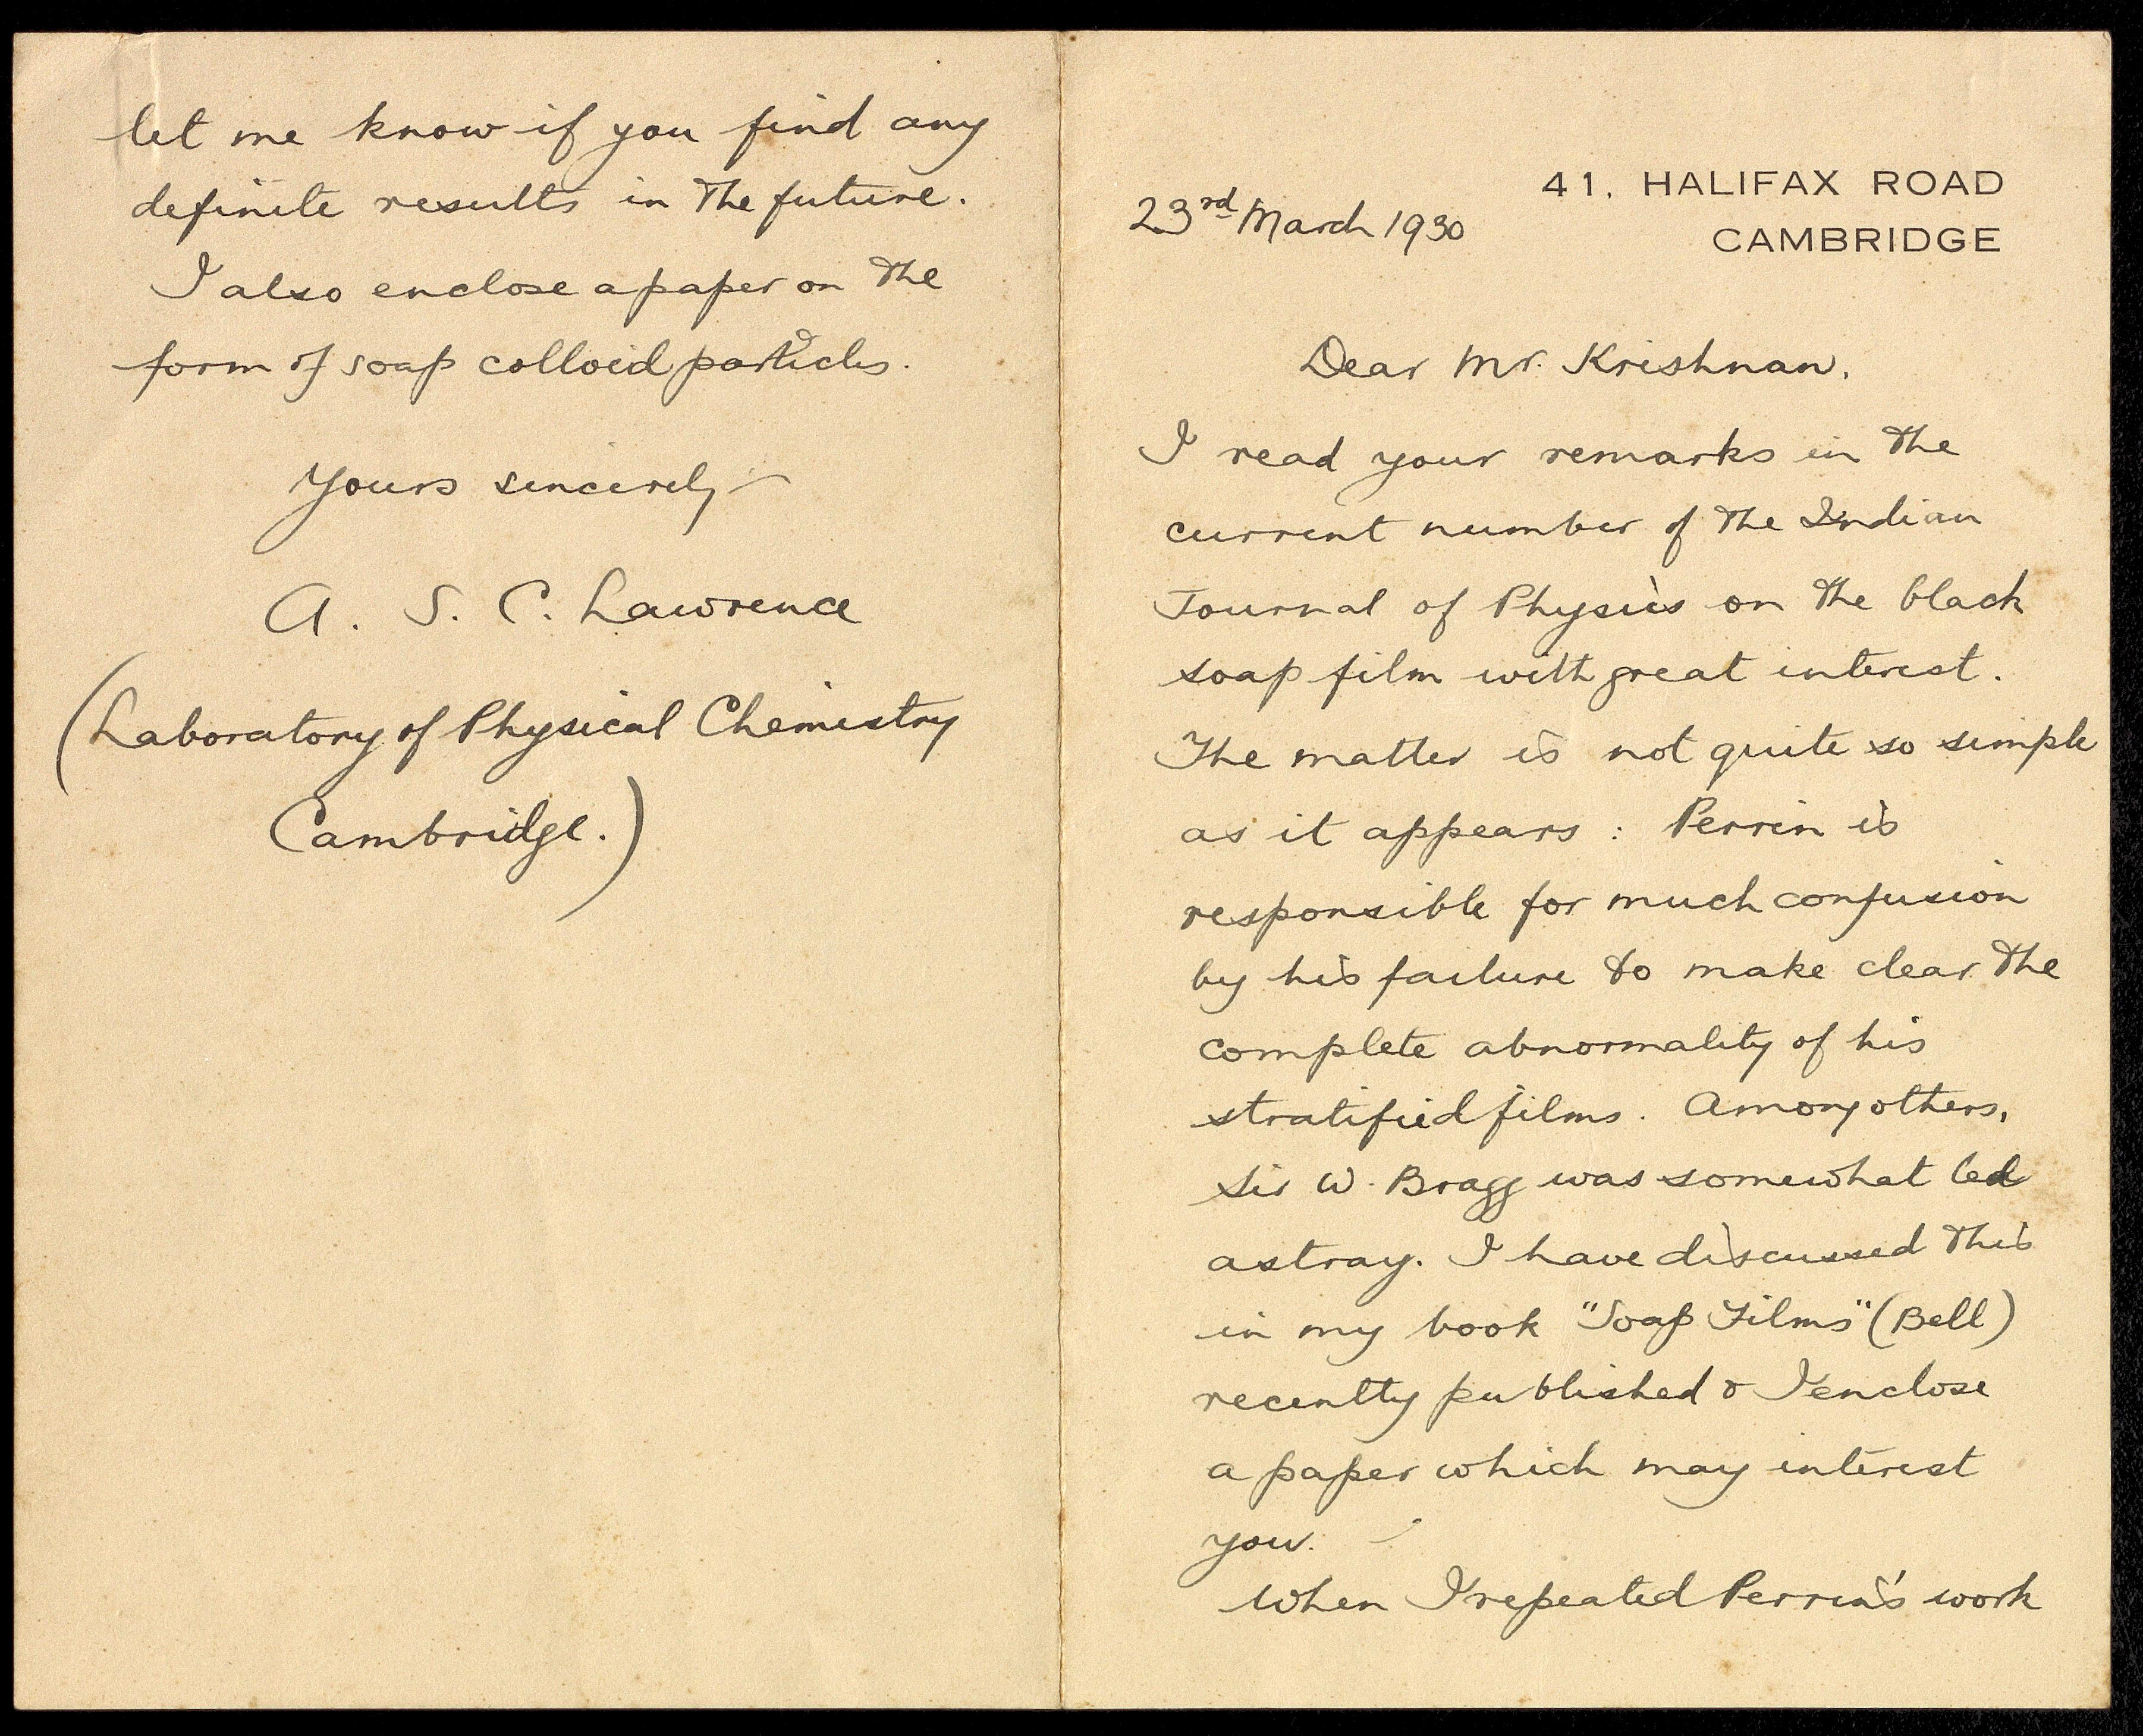 41, HALIFAX ROAD
CAMBRIDGE
23rd March 1930
Dear Mr. Krishnan,
I read your remarks in the
current number of the Indian
Journal of Physics on the black
soap film with great interest.
The matter is not quite so simple
as it appears : Perrin is
responsible for much confusion
by his failure to make clear the
complete abnormality of his
stratified films. Among others,
Sir W. Bragg was somewhat led
astray. I have discussed this
in my book "Soap Films" (Bell)
recently published & I enclose
a paper which may interest
you.
When I repeated Perrin's work
let me know if you find any
definite results in the future.
I also enclose a paper on the
form of soap colloid particles.
Yours sincerely
A. S. C. Lawrence
(Laboratory of Physical Chemistry
Cambridge.)